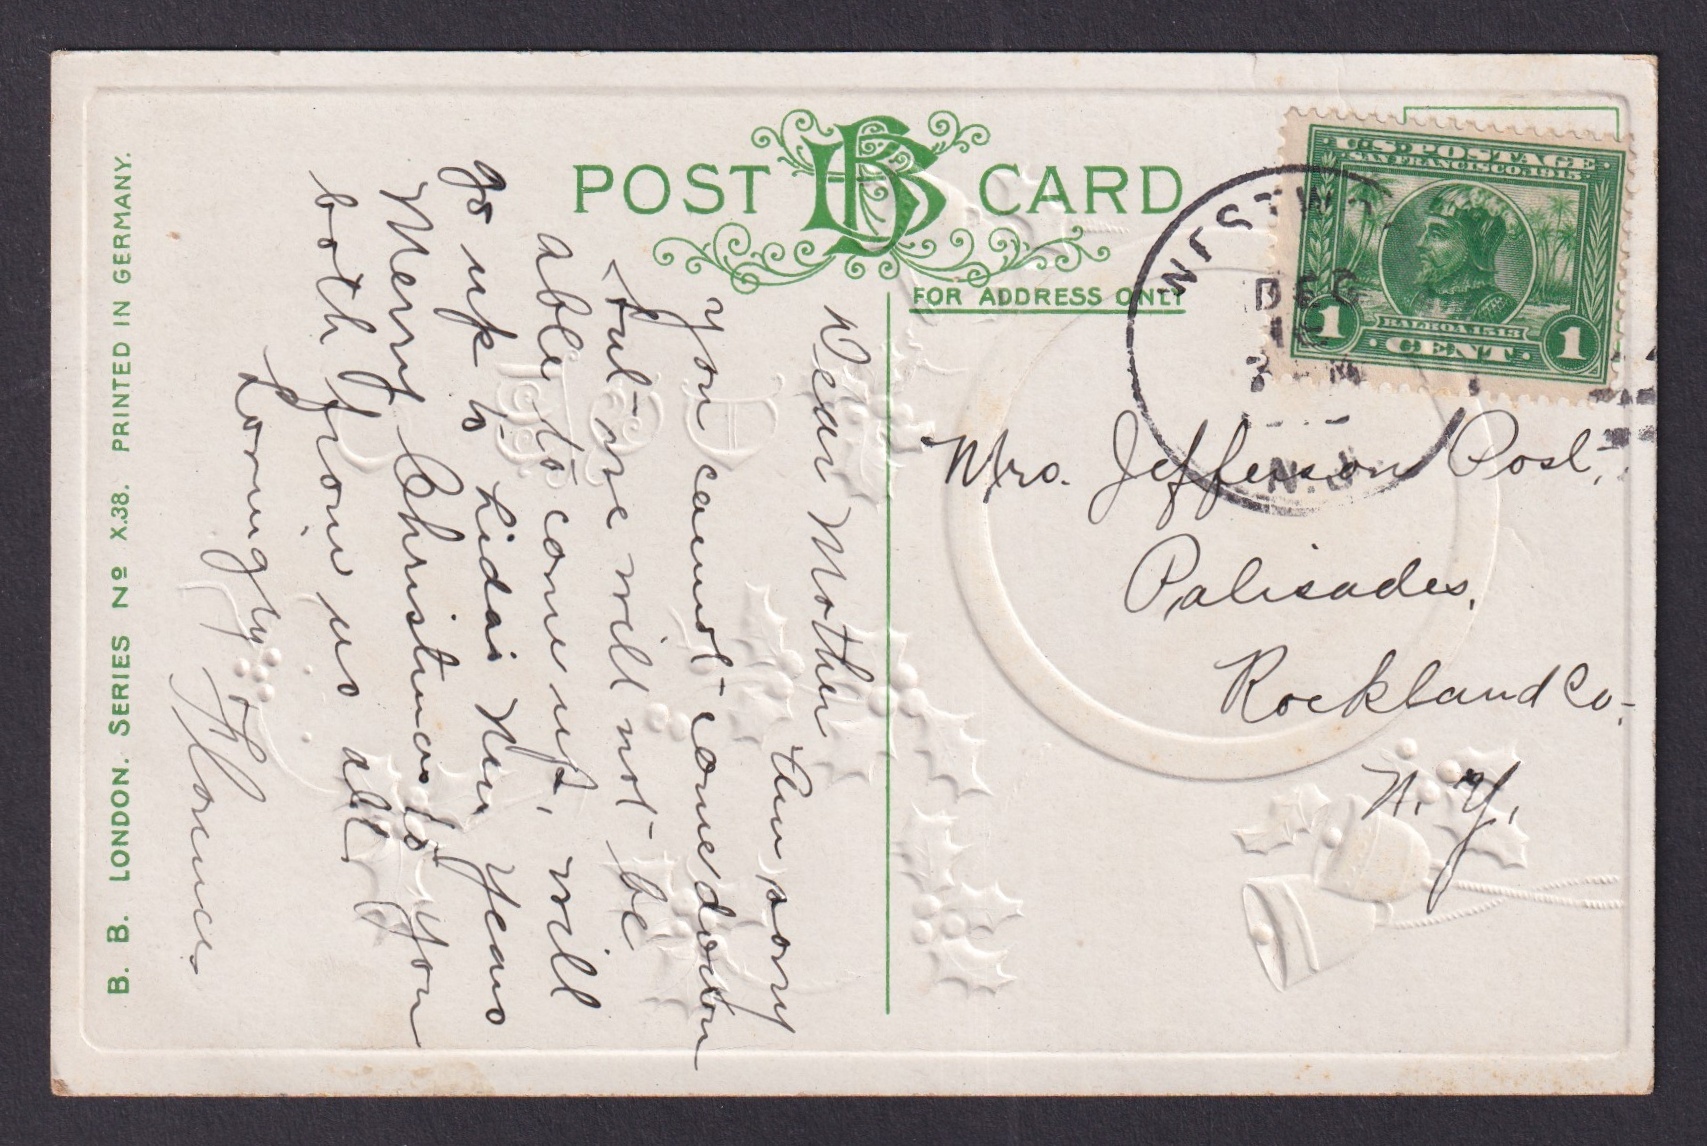 POST CARD
FOR ADDRESS ONLY
U.S. POSTAGE
SAN FRANCISCO 1915
BALBOA 1513
1 CENT 1
DEC
N.J.
Mrs. Jefferson Post,
Palisades,
Rockland Co.
N.Y.
Dear Mother
Am sorry
you cannot come down
but we will not be
able to come up, will
go up to Lidas New Years
Merry Christmas to you
both from us all
Lovingly
Florence
B. B. LONDON. SERIES Nº X.38. PRINTED IN GERMANY.